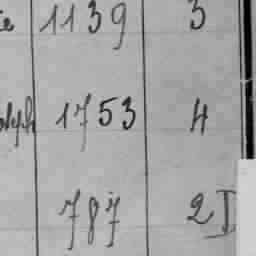 1139 3
1753 4
787 2